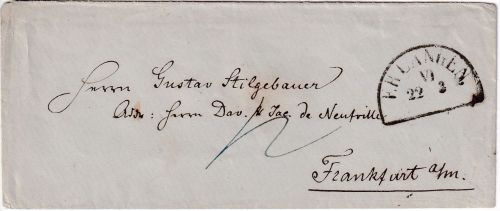 ERLANGEN
VI
22 2
Herrn Gustav Stilgebauer
Adr: Herrn Dav. & Jac. de Neufville
Frankfurt a/m.